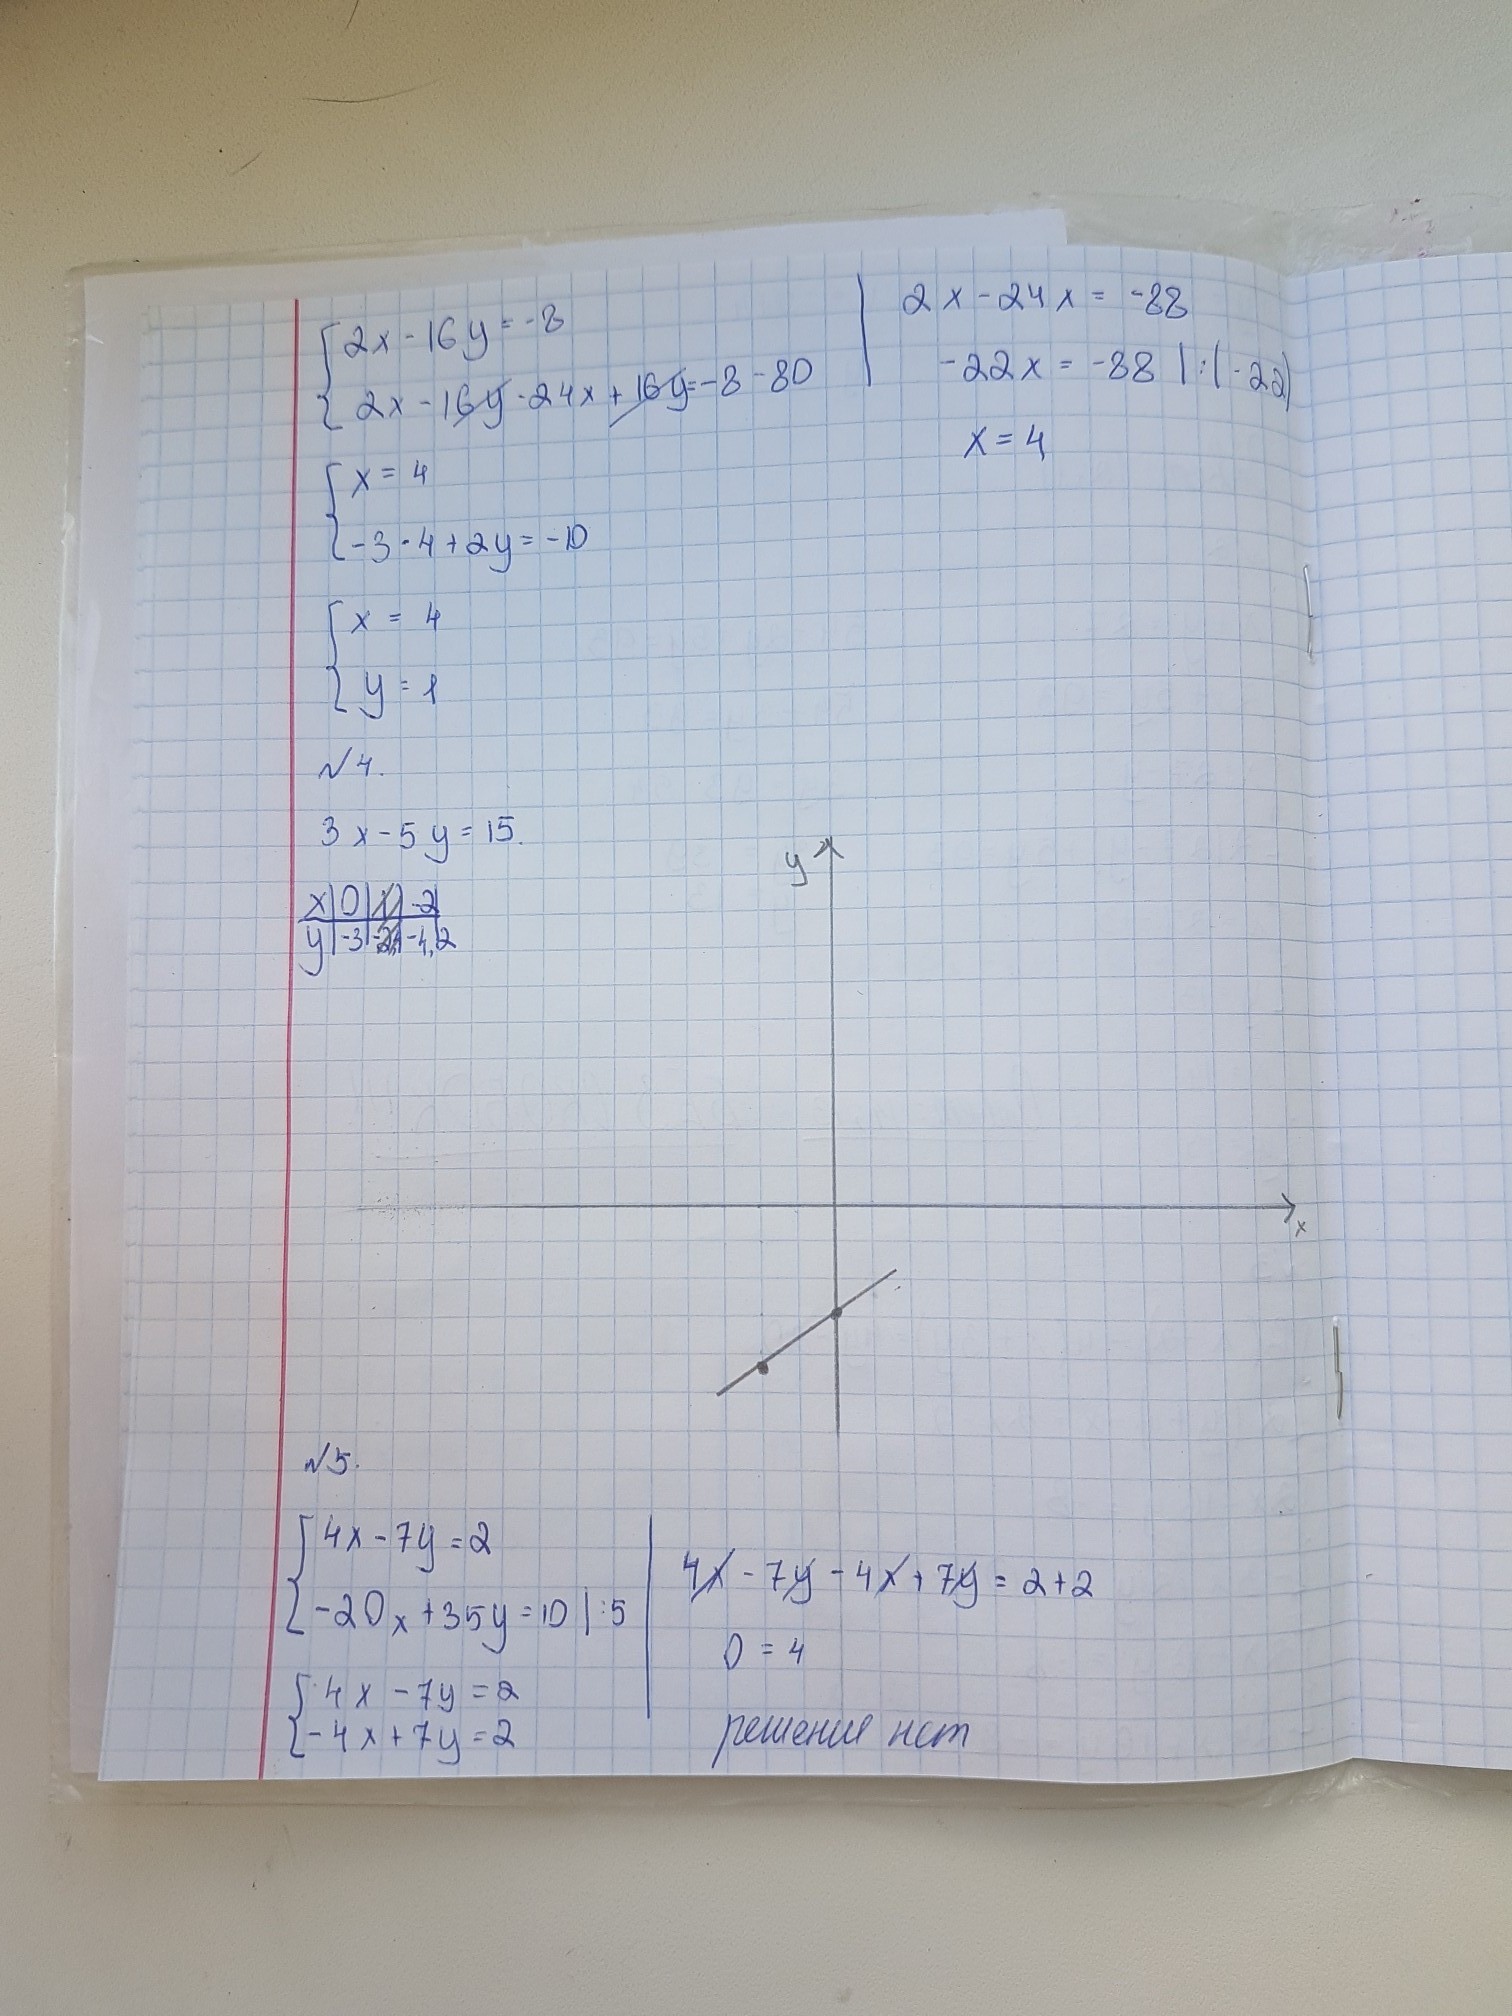 {2x - 16y = -8
{2x - 16y - 24x + 16y = -8 - 80
2x - 24x = -88
-22x = -88 | : (-22)
x = 4
{x = 4
{-3 · 4 + 2y = -10
{x = 4
{y = 1
№4.
3x - 5y = 15.
x | 0 | 1 | -2
y | -3 | | -4,2
y
x
№5.
{4x - 7y = 2
{-20x + 35y = 10 | :5
{4x - 7y = 2
{-4x + 7y = 2
4x - 7y - 4x + 7y = 2 + 2
0 = 4
решение нет